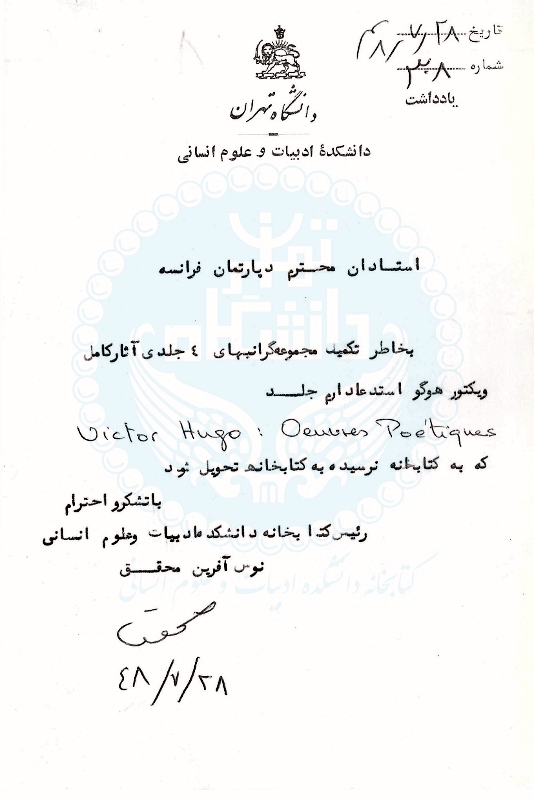 تاریخ ۴۸/۷/۲۸
شماره ۳۰۸
یادداشت
دانشگاه تهران
دانشکدهٔ ادبیات و علوم انسانی
استادان محترم دپارتمان فرانسه
بخاطر تکمیل مجموعه گرانبهای ٤ جلدی آثار کامل
ویکتور هوگو استدعا دارم جلد
Victor Hugo : Oeuvres Poétiques
که به کتابخانه نرسیده به کتابخانه تحویل شود
با تشکر و احترام
رئیس کتابخانه دانشکده ادبیات و علوم انسانی
نوش آفرین محقق
٤٨/٧/٢٨
کتابخانه دانشکده ادبیات و علوم انسانی